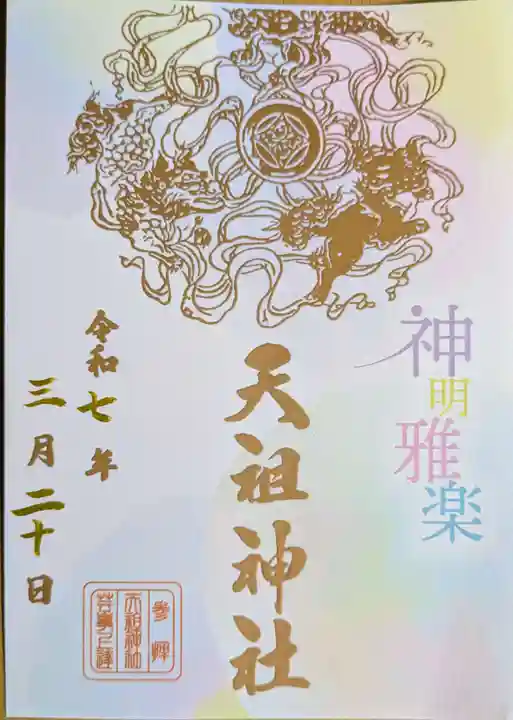 神明雅楽
天祖神社
令和七年
三月二十日
参拝
天祖神社